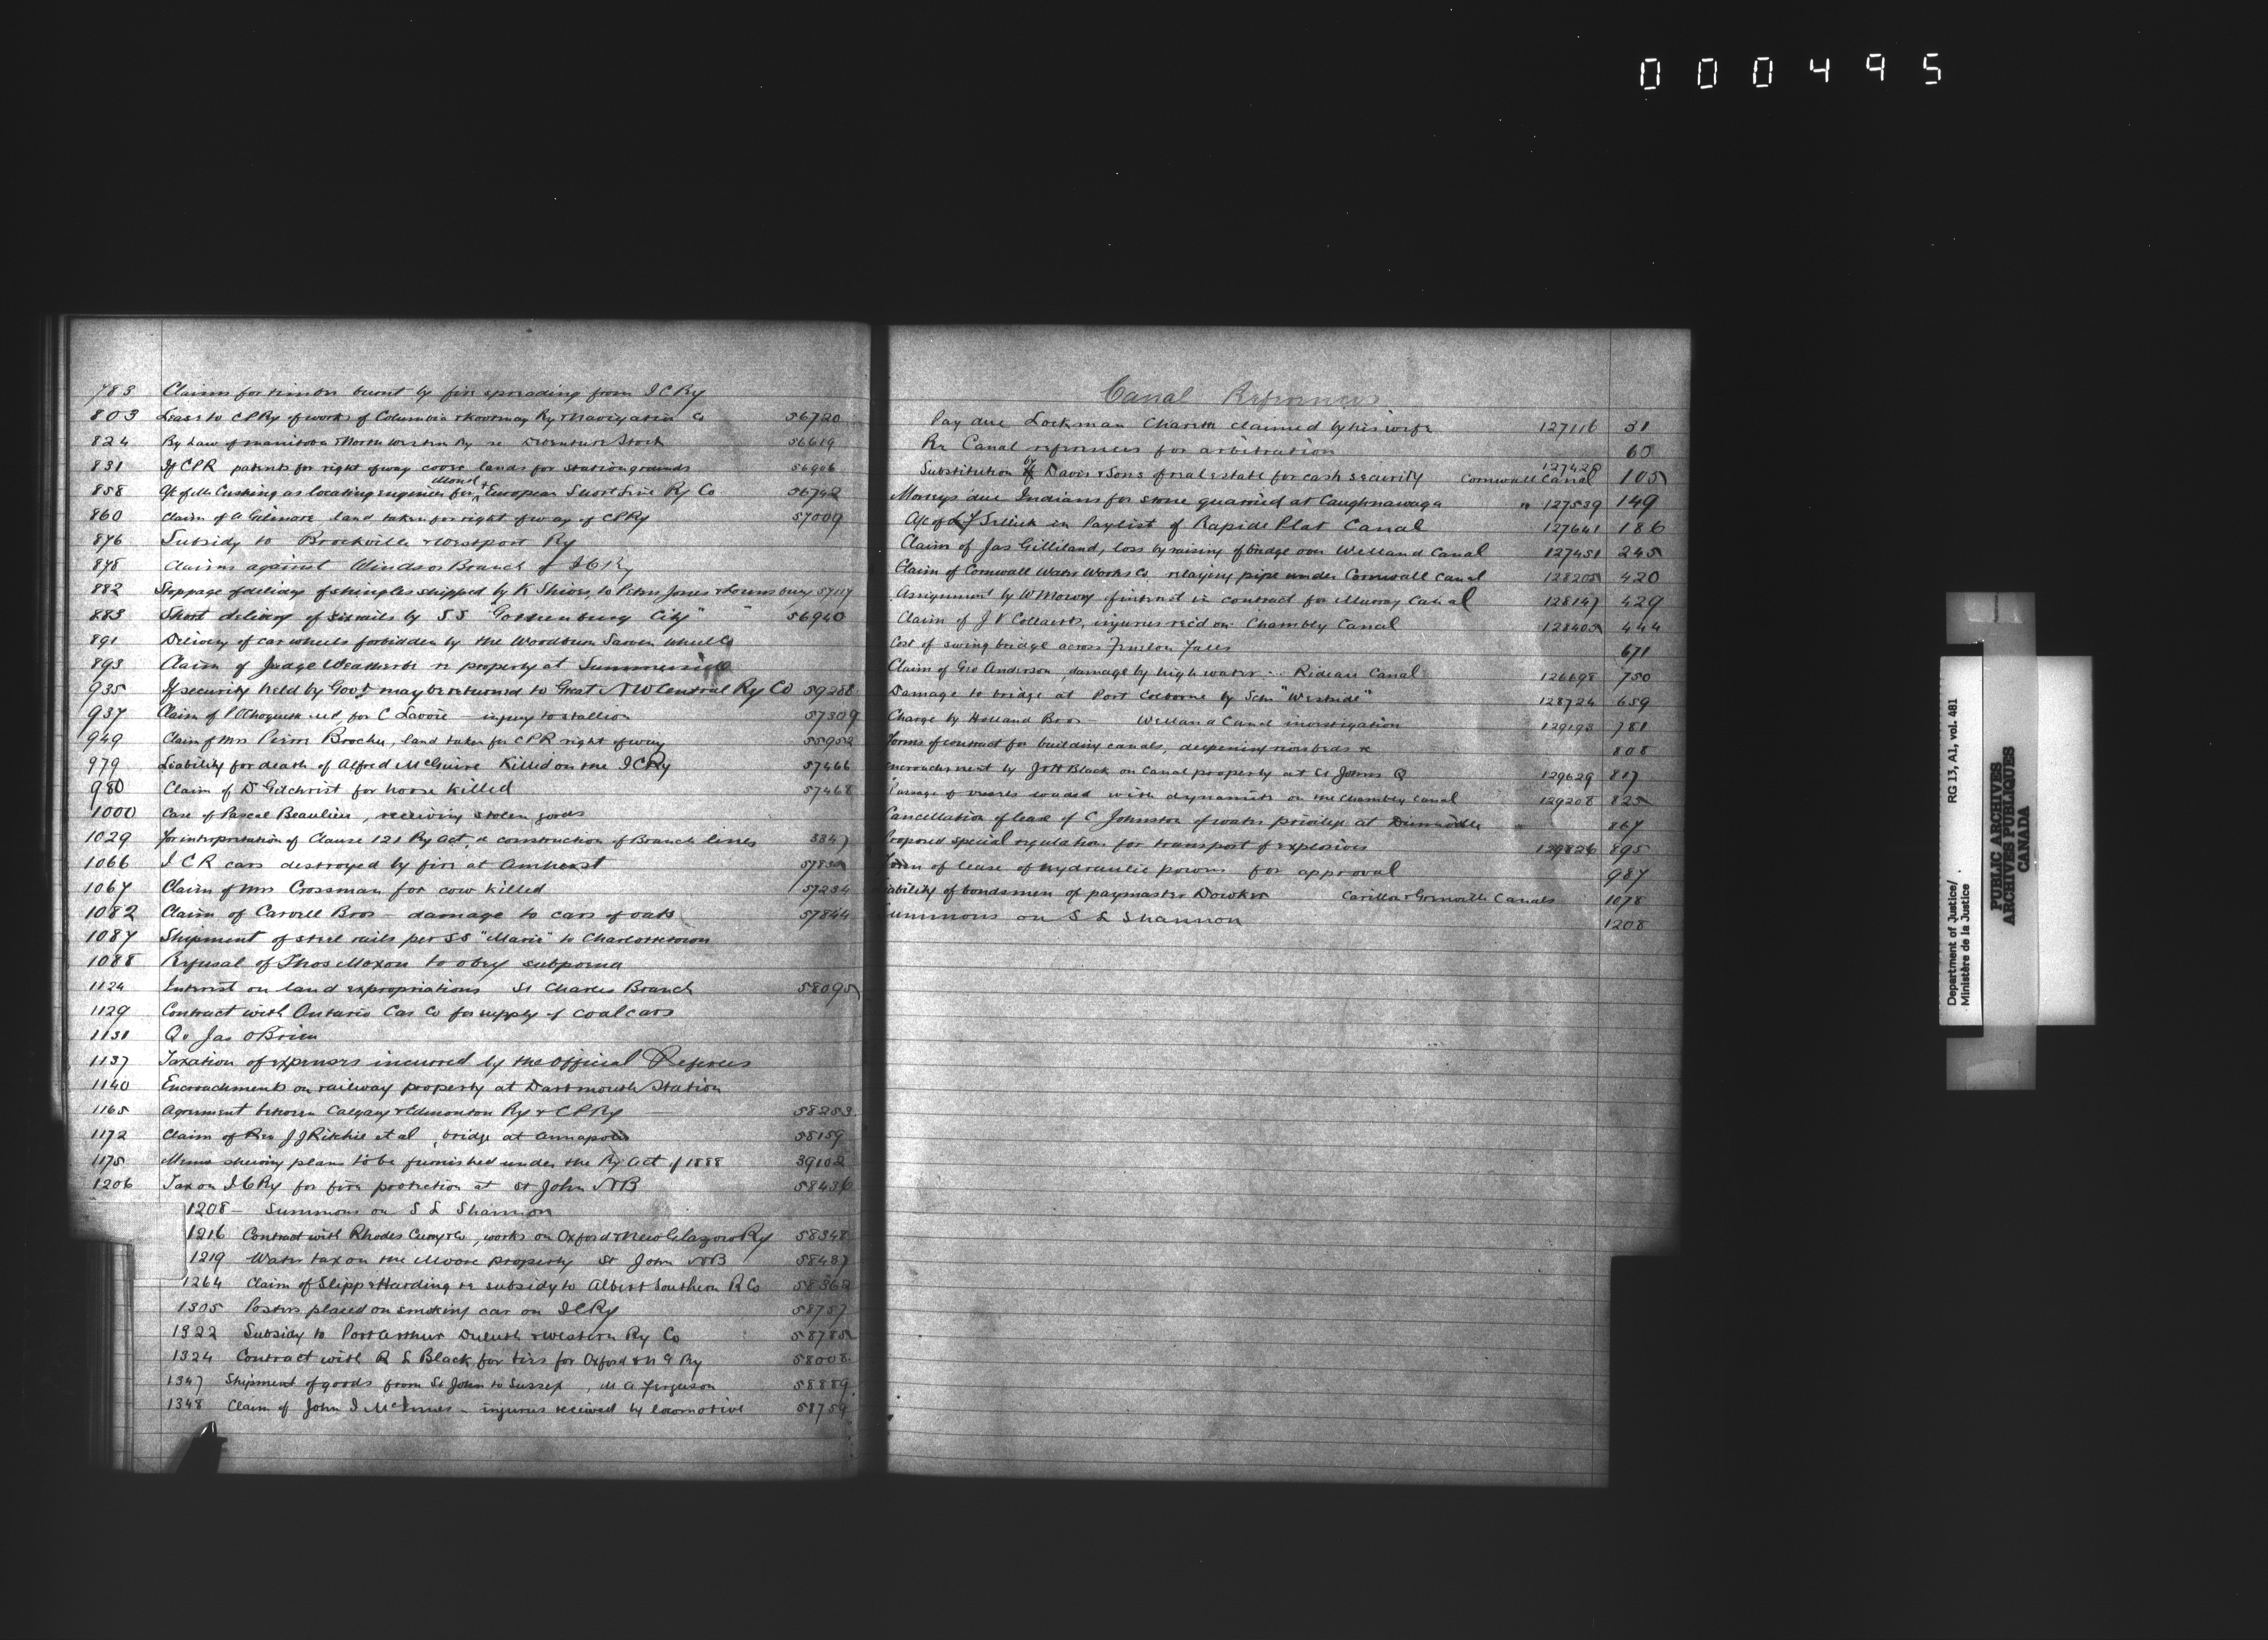 000495
783 Claims for timber burnt by fire spreading from I C Ry
803 Lease to CPRy of works of Columbia & Kootenay Ry & Navigation Co 56720
824 By Law of Manitoba & North Western Ry re Debenture Stock 56619
831 If CPR patents for right of way cover lands for station grounds 56906
858 of Mr Cushing as locating engineer for Montl & European Short Line Ry Co 56742
860 Claim of A Gilmore land taken for right of way of CPRy 57009
876 Subsidy to Brockville & Westport Ry
878 Claims against Windsor Branch of I C Ry
882 Stoppage of delivery of shingles shipped by K Shives to Peter Jones & Lounsbury 57117
883 Short delivery of rails by SS "Gothenburg City" 56940
891 Delivery of car wheels forbidden by the Woodburn Sarven Wheel Co
893 Claim of Judge Weatherbe re property at Summerside
935 If security held by Govt may be returned to Great N W Central Ry Co 59288
937 Claim of P A Choquette M.P. for C Lavoie — injury to stallion 57309
949 Claim of Mrs Pierre Brochu, land taken for CPR right of way 55952
979 Liability for death of Alfred McGuire Killed on the I C Ry 57466
980 Claim of D Gilchrist for horse killed 57468
1000 Case of Pascal Beaulieu, receiving stolen goods
1029 For interpretation of Clause 121 Ry Act, construction of Branch lines
1066 I C R cars destroyed by fire at Amherst
1067 Claim of Mrs Crossman for cow killed 57234
1082 Claim of Carvell Bros — damage to cars of oats 57844
1087 Shipment of steel rails per SS "Marie" to Charlottetown
1088 Refusal of Thos Moxon to obey subpoena
1124 Interest on land expropriations St Charles Branch 58095
1129 Contract with Ontario Car Co for supply of coal cars
1131 Q v Jas O'Brien
1137 Taxation of expenses incurred by the Official Referees
1140 Encroachments on railway property at Dartmouth Station
1165 Agreement between Calgary & Edmonton Ry & CPRy 58253
1172 Claim of Rev J J Ritchie et al, bridge at Annapolis 58159
1175 Memo shewing plans to be furnished under the Ry Act of 1888 39102
1206 Tax on I C Ry for fire protection at St John N B 58436
1208 — Summons on S L Shannon
1216 Contract with Rhodes Curry & Co, works on Oxford & New Glasgow Ry 58348
1219 Water tax on the Moore property St John N B 58437
1264 Claim of Slipp & Harding re subsidy to Albert Southern R Co 58362
1305 Posters placed on smoking car on I C Ry 58757
1322 Subsidy to Port Arthur Duluth & Western Ry Co 58785
1324 Contract with R L Black for ties for Oxford & N G Ry 58008
1347 Shipment of goods from St John to Sussex, M A Ferguson 58889
1348 Claim of John I McInnes — injuries received by locomotive 58759
Canal References
Pay due Lockman Charette claimed by his wife 127116 31
Re Canal references for arbitration 60
Substitution by Davis & Sons of real estate for cash security Cornwall Canal 127420 105
Moneys due Indians for stone quarried at Caughnawaga " 127539 149
in Paylist of Rapide Plat Canal 127641 186
Claim of Jas Gilliland, loss by raising of bridge over Welland Canal 127451 245
Claim of Cornwall Water Works Co relaying pipe under Cornwall Canal 128205 420
Assignment by W Mowry of interest in contract for Murray Canal 128147 429
Claim of J V Collaerts, injuries rec'd on Chambly Canal 128405 444
Cost of swing bridge across Fenelon Falls 671
Claim of Geo Anderson, damage by high water — Rideau Canal 126698 750
Damage to bridge at Port Colborne by Schr "Westside" 128724 659
Charge by Holland Bros — Welland Canal investigation 129193 781
Forms of contract for building canals, deepening river beds &c 808
Encroachment by J & H Black on Canal property at St Johns Q 129629 817
Passage of vessels loaded with dynamite on the Chambly Canal 129208 825
Cancellation of lease of C Johnston of water privilege at Dunnville 867
Proposed special regulations for transport of explosives 129826 895
Form of lease of hydraulic powers for approval 987
Liability of bondsmen of paymaster Dowker Carillon & Grenville Canals 1078
Summons on S L Shannon 1208
Department of Justice/
Ministère de la Justice
RG 13, A1, vol. 481
PUBLIC ARCHIVES
ARCHIVES PUBLIQUES
CANADA